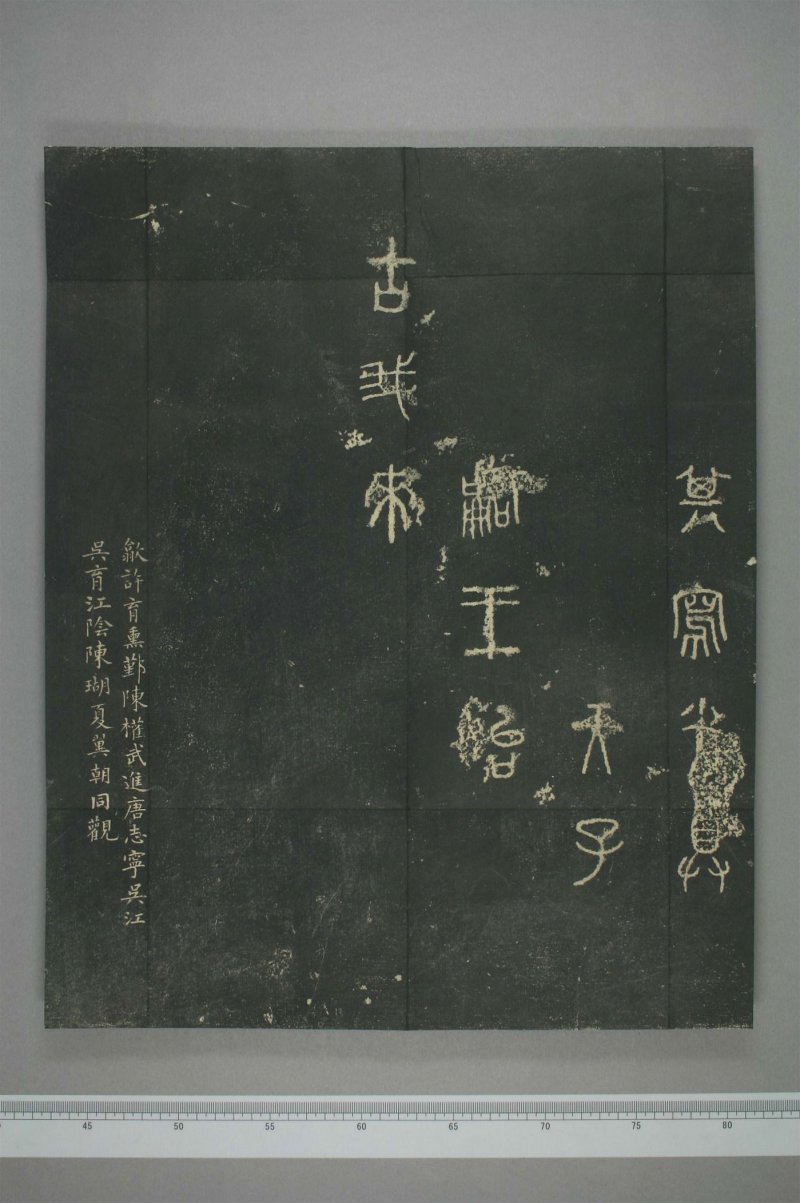 其寫小具
天子
嗣王始
古我來
歙許育熏鄞陳權武進唐志寧吳江
吳育江陰陳瑚夏翼朝同觀
45 50 55 60 65 70 75 80